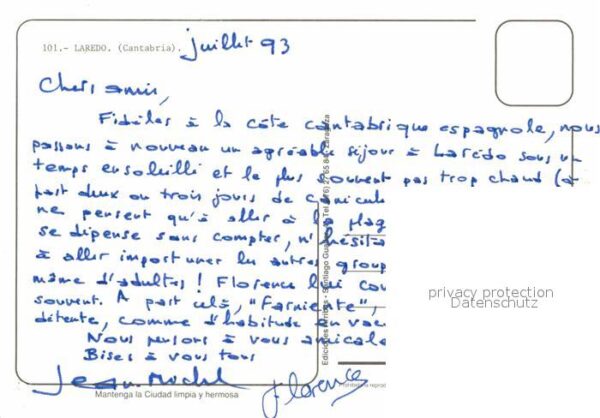 101.- LAREDO. (Cantabria).
juillet 93
Chers amis,
Fidèles à la côte cantabrique espagnole, nous
passons à nouveau un agréable séjour à Laredo sous un
temps ensoleillé et le plus souvent pas trop chaud (à
part deux ou trois jours de canicule
ne pensent qu'à aller à la plag
se dépense sans compter, n'hésita
à aller importuner les autres group
même d'adultes ! Florence lui cou
souvent. A part celà, "Farniente",
détente, comme d'habitude en vac
Nous pensons à vous amicale
Bises à vous tous
Jean-Michel
Florence
Mantenga la Ciudad limpia y hermosa
privacy protection
Datenschutz